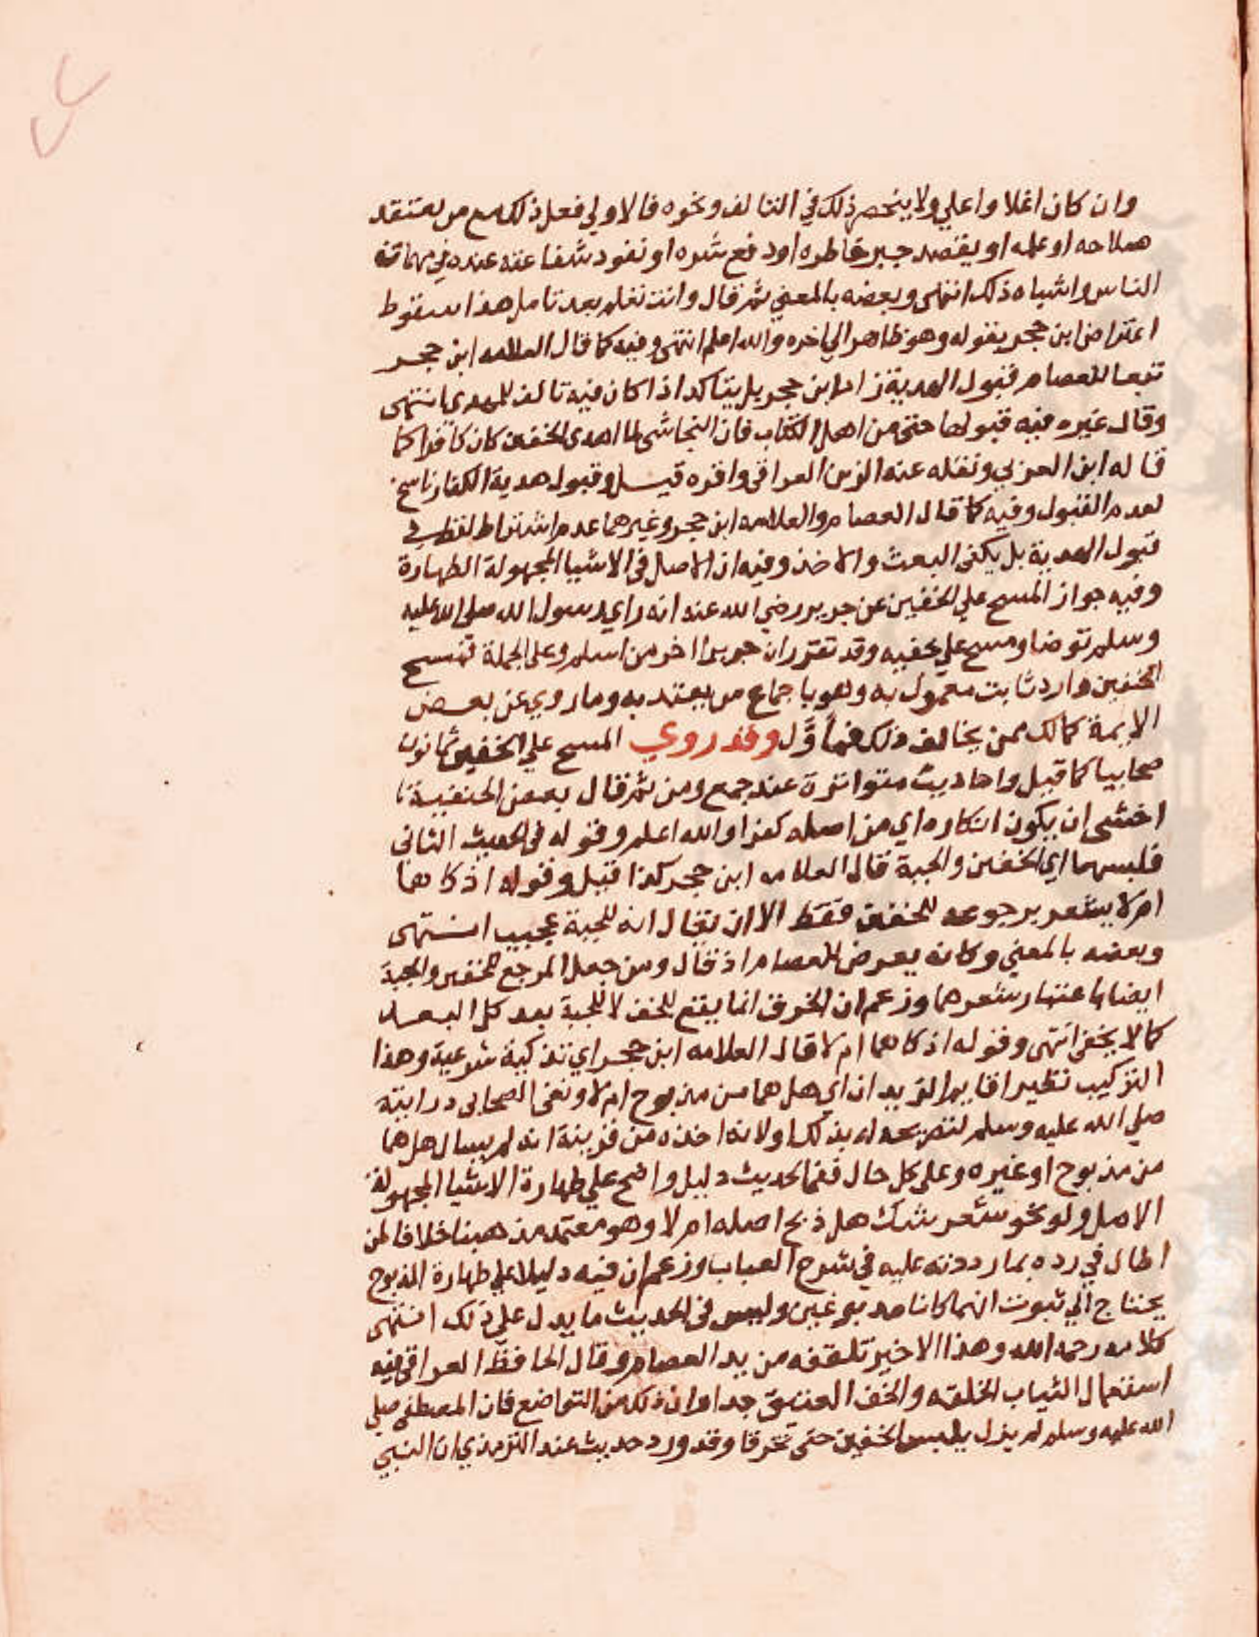 وان كان اغلا واعلي ولا ينحصر ذلك في التالف ونحوه فالاولي فعل ذلك مع من يعتقد
صلاحه او علمه او يقصد جبر خاطره او دفع شره او نفوذ شفاعته عنده في مهمات
الناس واشباه ذلك انتهى وبعضه بالمعني ثم قال وانت تعلم بعد تامل هذا سقوط
اعتراض ابن حجر بقوله وهو ظاهر الي اخره والله اعلم انتهى وفيه كما قال العلامه ابن حجر
تبعا للعصام قبول الهدية زاد ابن حجر بل يتاكد اذا كان فيه تالف للمهدي انتهى
وقال غيره فيه قبولها حتى من اهل الكتاب فان النجاشي لما اهدى الخفين كان كافرا كما
قاله ابن العربي ونقله عنه الزين العراقي واقره قيل وقبول هدية الكفار ناسخ
لعدم القبول وفيه كما قال العصام والعلامه ابن حجر وغيرهما عدم اشتراط لفظ في
قبول الهدية بل يكفي البعث والاخذ وفيه ان الاصل في الاشيا المجهولة الطهارة
وفيه جواز المسح علي الخفين عن جرير رضي الله عنه انه راي رسول الله صلى الله عليه
وسلم توضا ومسح علي خفيه وقد تقرر ان جريرا اخر من اسلم وعلى الجملة فمسح
الخفين وارد ثابت معمول به وهو باجماع من يعتد به وما روي عن بعض
الايمة كمالك ممن يخالف ذلك فمأوَّل وقد روي المسح علي الخفين ثمانون
صحابيا كما قيل واحاديث متواترة عند جمع ومن ثم قال بعض الحنفية
اخشى ان يكون انكاره اي من اصله كفرا والله اعلم وقوله في الحديث الثاني
فلبسهما اي الخفين والجبة قال العلامه ابن حجر كذا قيل وقوله اذكاهما
ام لا يشعر برجوعه للخفين فقط الا ان يقال انه للجبة عجيب انتهى
وبعضه بالمعني وكانه يعرض للعصام اذ قال ومن جعل المرجع للخفين والجبة
ايضا باعتبار شعرهما وزعم ان الخرق انما يقع للخف لا للجبة بعد كل البعد
كما لا يخفى انتهى وقوله اذكاهما ام لا قال العلامه ابن حجر اي تذكية شرعية وهذا
التركيب نظير اقايم الزيدان اي هل هما من مذبوح ام لا ونفى الصحابي درايته
صلي الله عليه وسلم لتصريحه له بذلك اولانه اخذه من قرينة انه لم يسال هل هما
من مذبوح او غيره وعلى كل حال ففي الحديث دليل واضح علي طهارة الاشيا المجهولة
الاصل ولو نحو شعر شك هل ذبح اصله ام لا وهو معتمد مذهبنا خلافا لمن
اطال في رده بما رددته عليه في شرح العباب وزعم ان فيه دليلا علي طهارة المذبوح
يحتاج الي ثبوت انهما كانا مدبوغين وليس في الحديث ما يدل علي ذلك انتهى
كلامه رحمه الله وهذا الاخير تلقفه من يد العصام وقال الحافظ العراقي فيه
استعمال الثياب الخلقه والخف العتيق جدا وان ذلك من التواضع فان المصطفى صلي
الله عليه وسلم لم يزل يلبس الخفين حتى تخرقا وقد ورد حديث عند الترمذي ان النبي